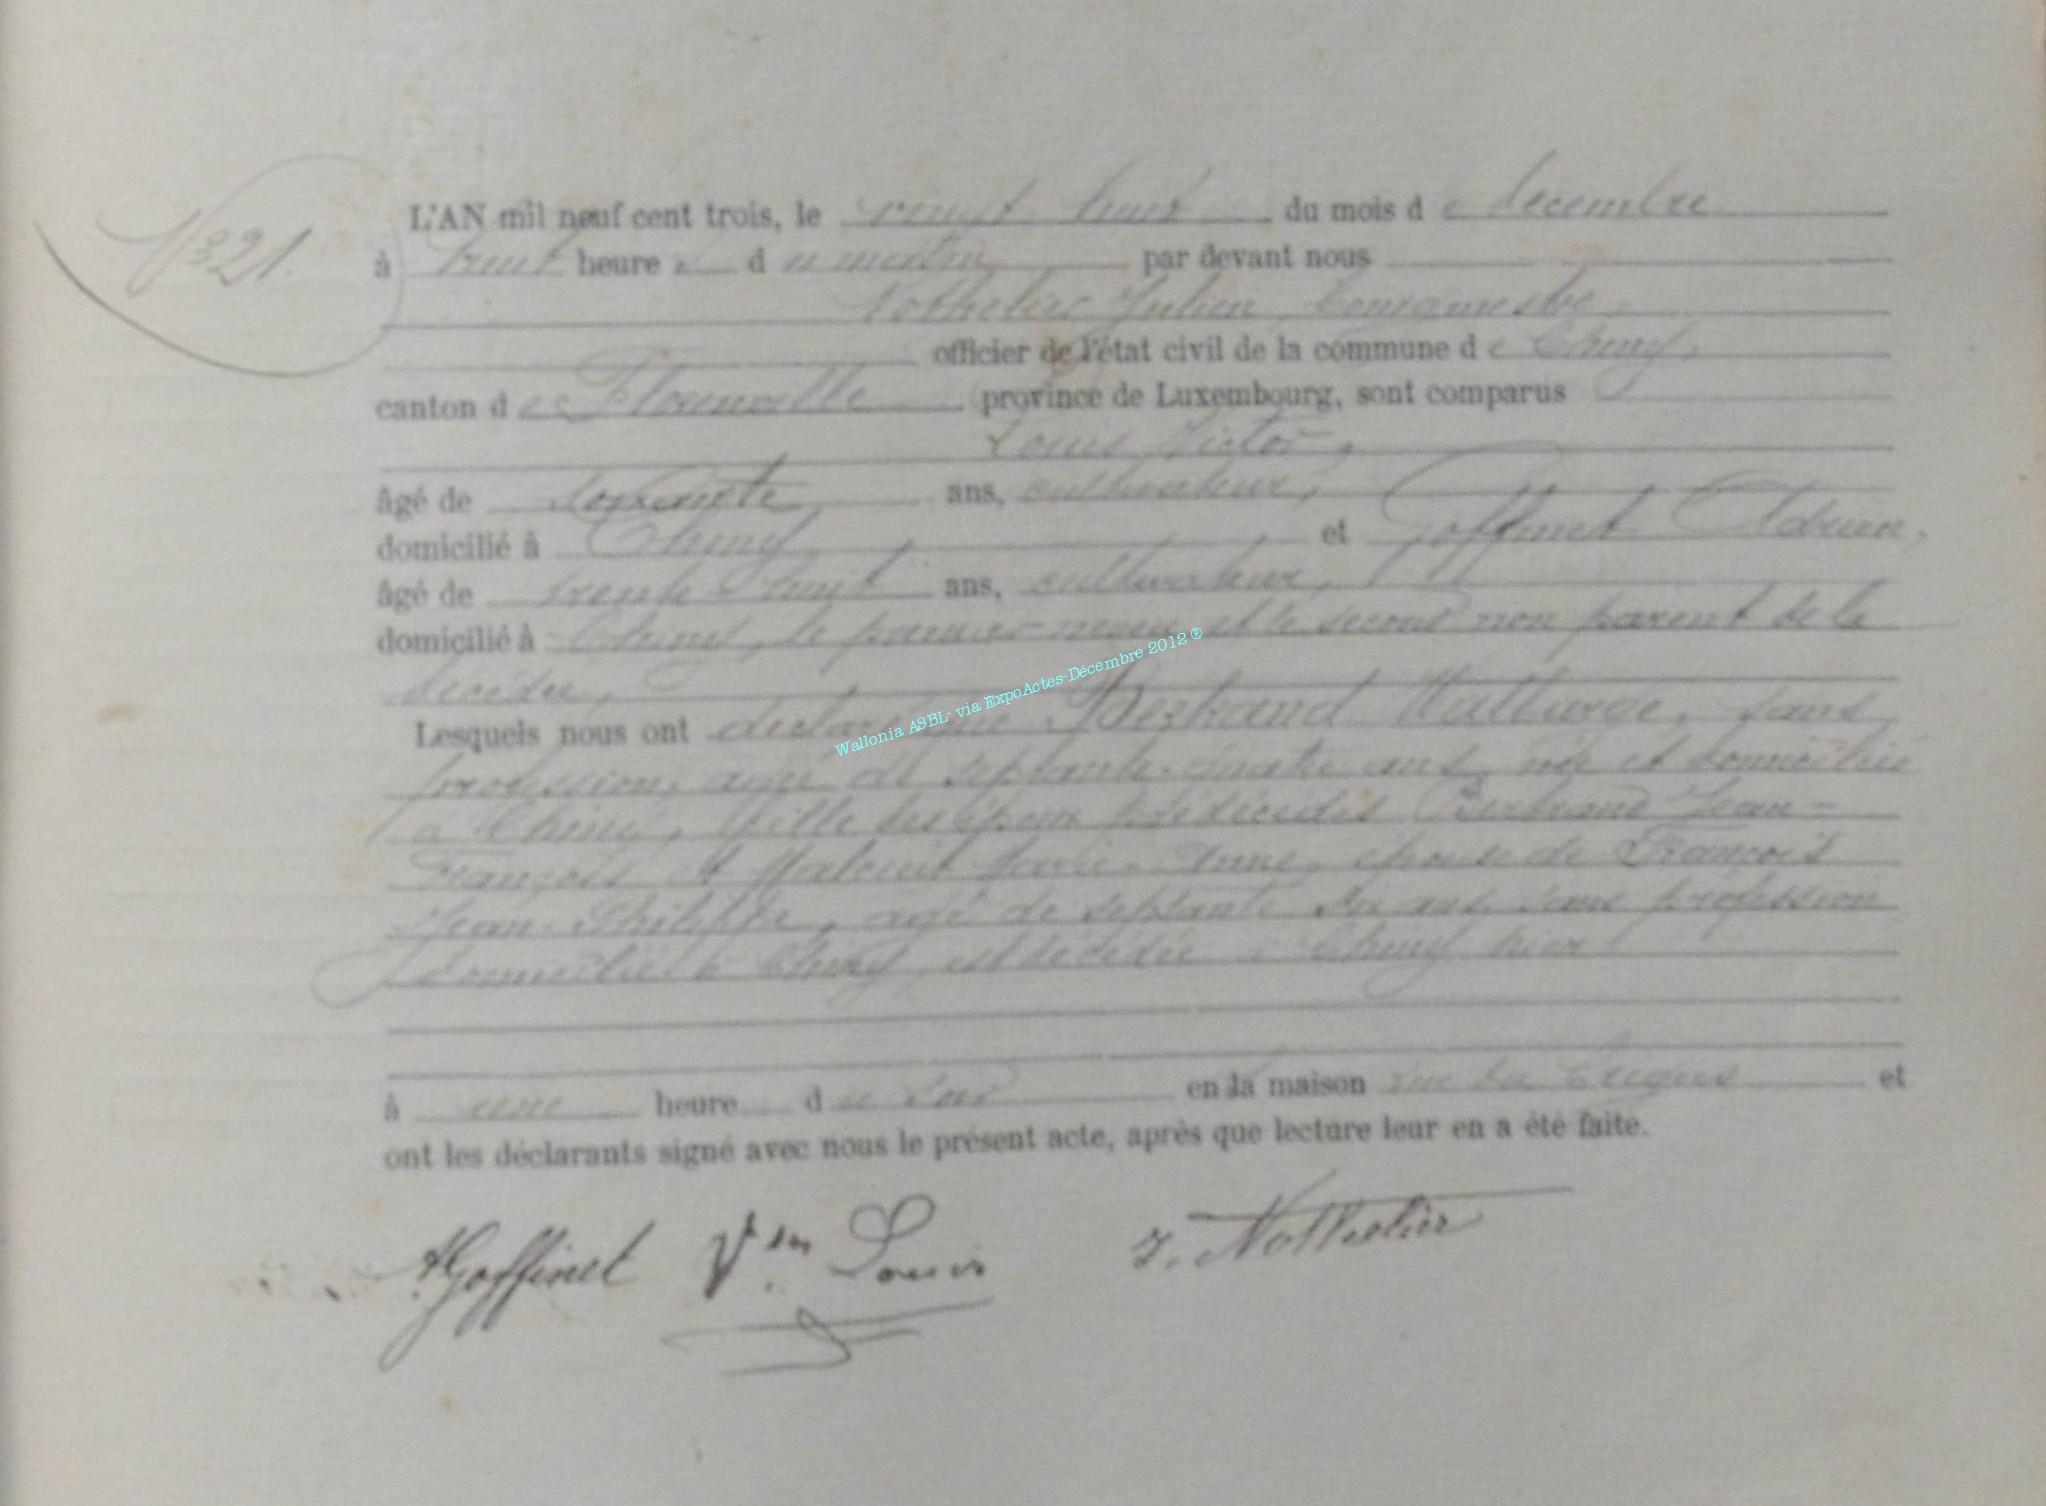 N° 21.
L'AN mil neuf cent trois, le vingt huit du mois de décembre
à huit heures du matin par devant nous
Nothelier Julien, bourgmestre,
officier de l'état civil de la commune de Chiny,
canton de Florenville province de Luxembourg, sont comparus
Louis Victor,
âgé de soixante ans, cultivateur,
domicilié à Chiny et Goffinet Adrien,
âgé de trente huit ans, cultivateur,
domicilié à Chiny, le premier neveu et le second non parent de la
décédée,
Lesquels nous ont déclaré que Bertrand Walburge, sans
profession, agée de septante-quatre ans, née et domiciliée
à Chiny, fille des époux prédécédés Bertrand Jean-
François et Marie-Anne, épouse de François
Jean-Philippe, agé de septante six ans, sans profession
domicilié à Chiny, est décédée à Chiny hier
à une heure du soir en la maison rue du et
ont les déclarants signé avec nous le présent acte, après que lecture leur en a été faite.
A. Goffinet Vor Louis J. Nothelier
Wallonia ASBL- via ExpoActes-Décembre 2012 ®